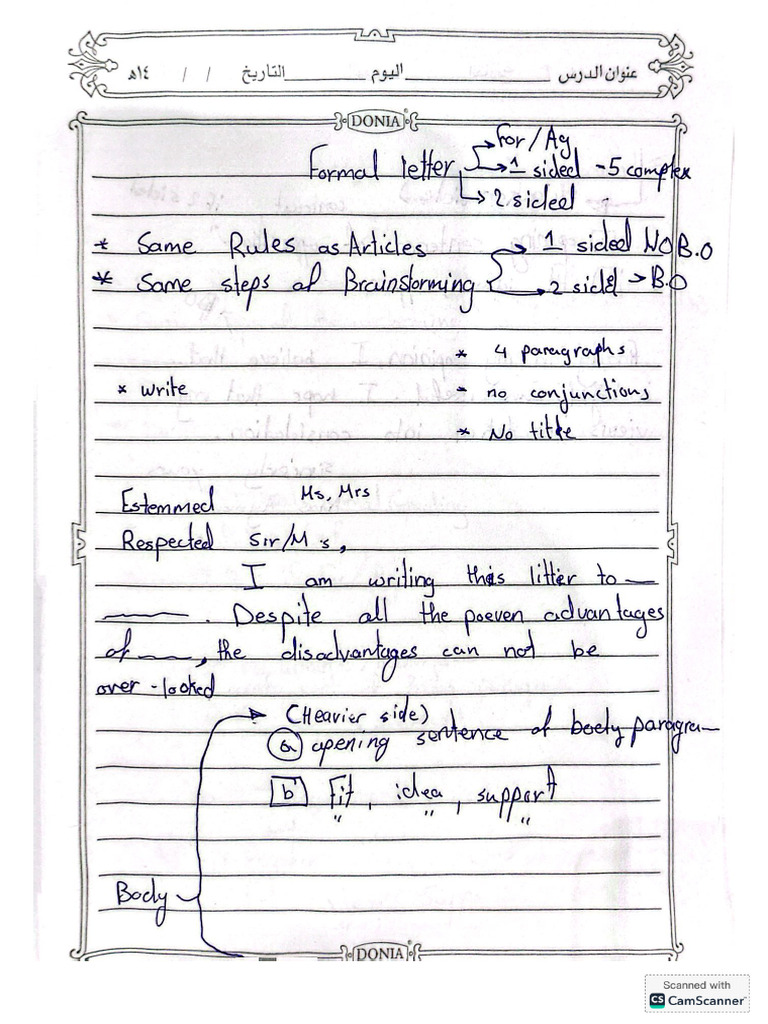 عنوان الدرس اليوم التاريخ / / ١٤هـ
DONIA
For/Ag
Formal letter 1 sided -5 complex
2 sided
* Same Rules as Articles 1 sided NO B.O
* Same steps of Brainstorming 2 sided → B.O
* 4 paragraphs
* write - no conjunctions
* No title
Estemmed Ms, Mrs
Respected Sir/Ms,
I am writing this litter to
. Despite all the poeven advantages
of , the disadvantages can not be
over-looked
(Heavier side)
a opening sentence of body paragra
b Fit, idea, support
" " "
Body
DONIA
Scanned with
CS CamScanner